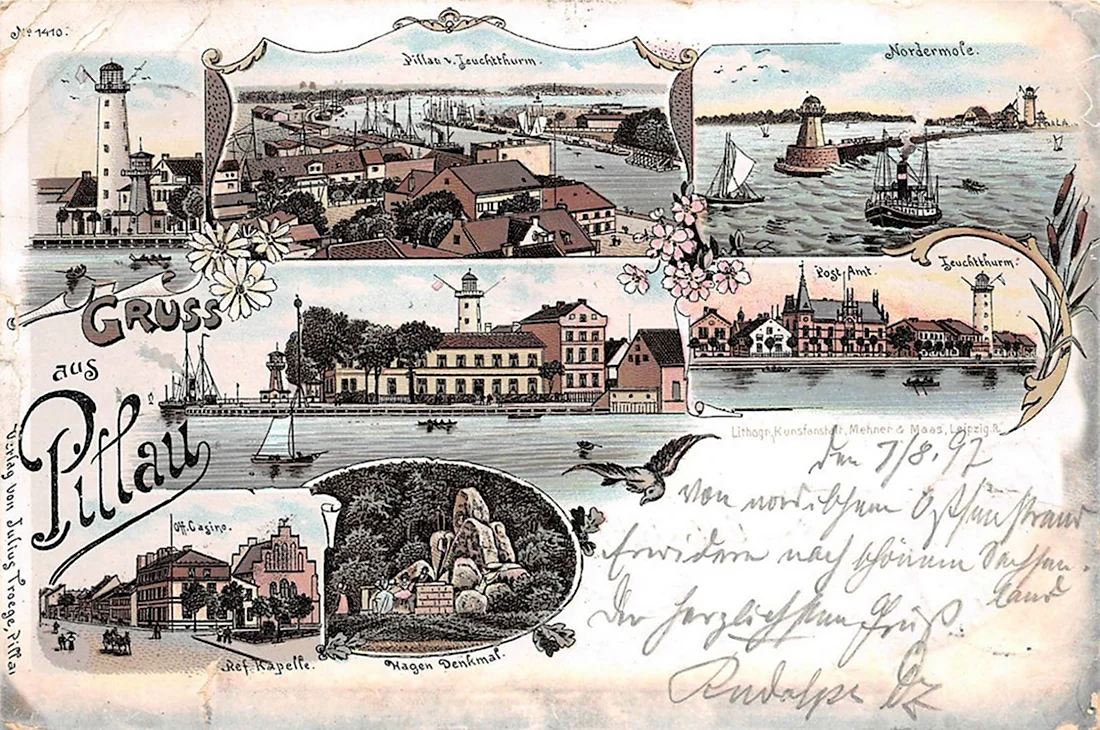 No 1410.
Pillau v. Leuchtthurm.
Nordermole.
Post Amt.
Leuchtthurm.
GRUSS
aus
Pillau
Lithogr. Kunstanstalt, Mehner & Maas, Leipzig R.
Off. Casino.
Ref. Kapelle.
Hagen Denkmal.
Verlag von Julius Troege, Pillau
den 7/8. 97
Von nordischem Ostseestrand
Erwidern nach schönem Sachsen-
land
Der herzlichsten Gruß.
Rudolph